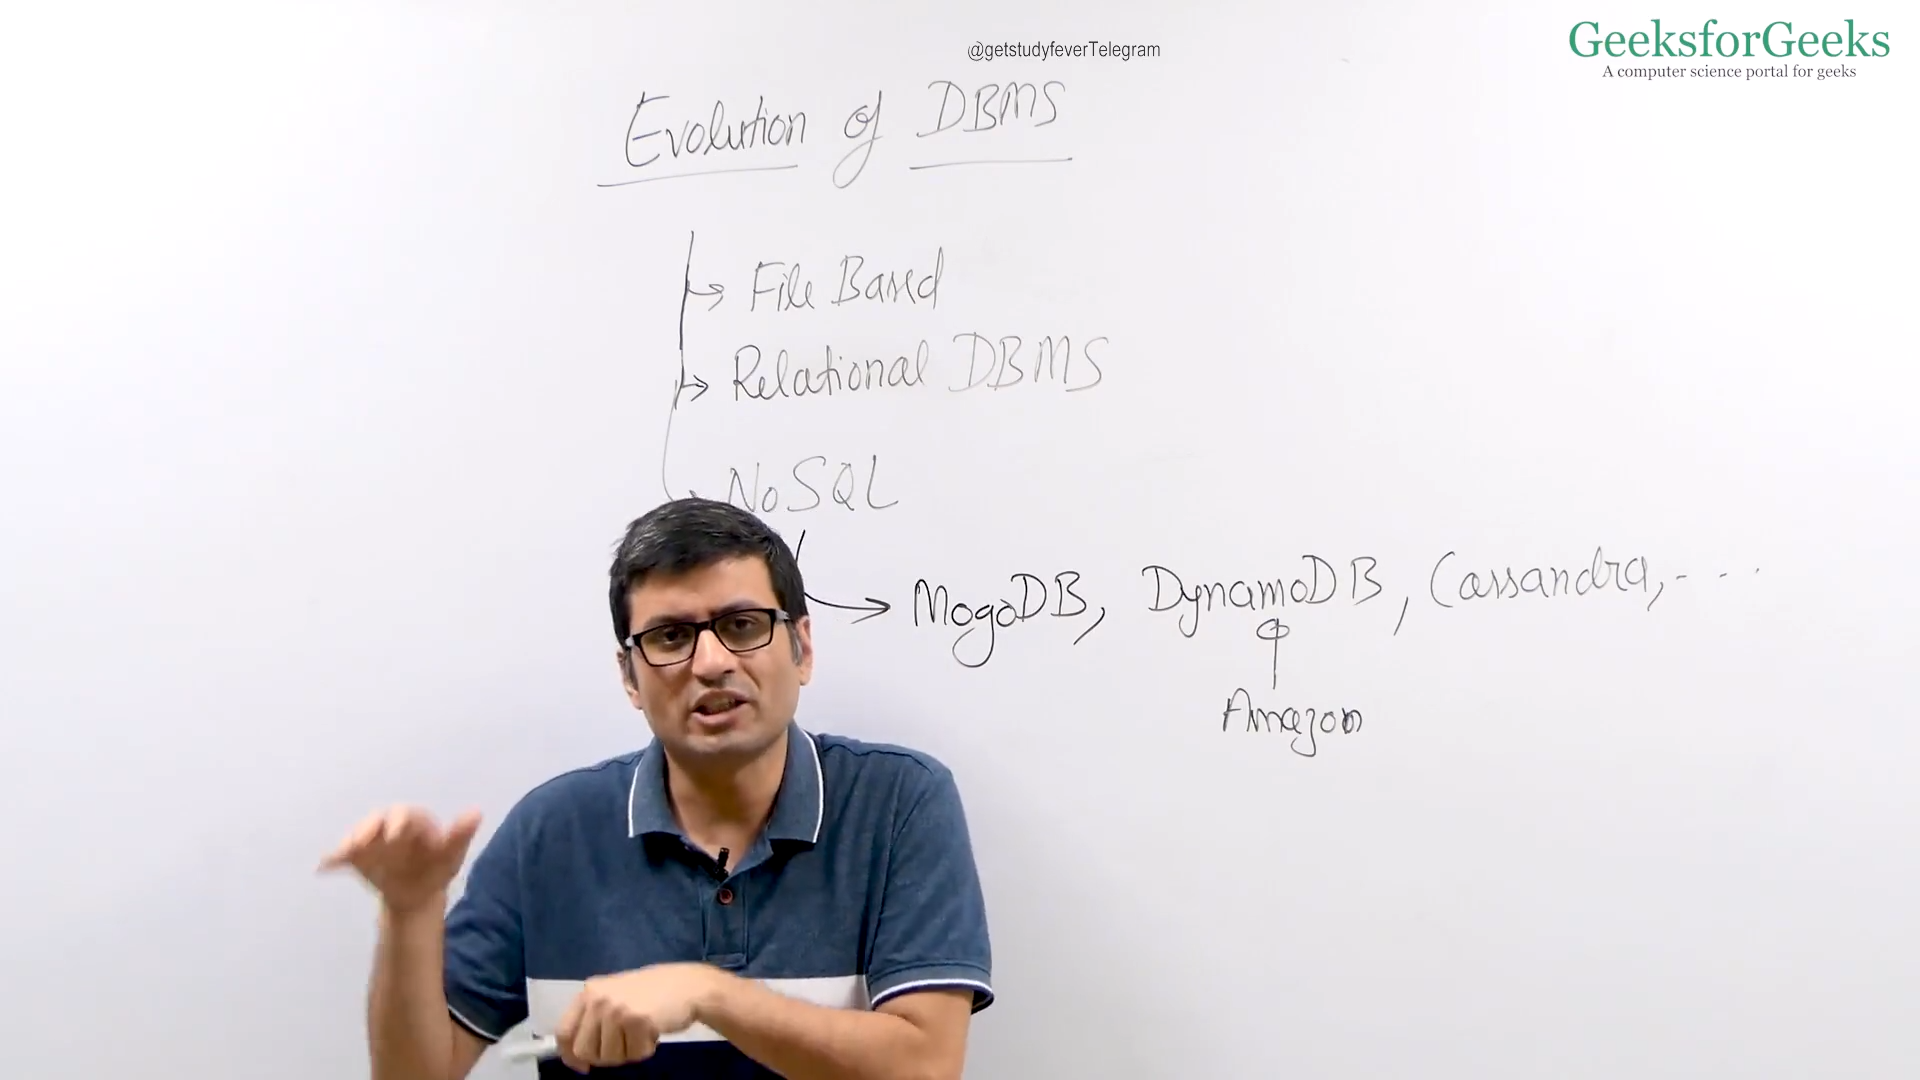 @getstudyfeverTelegram
GeeksforGeeks
A computer science portal for geeks
Evolution of DBMS
File Based
Relational DBMS
NoSQL
MogoDB, DynamoDB, Cassandra, - - - .
Amazon